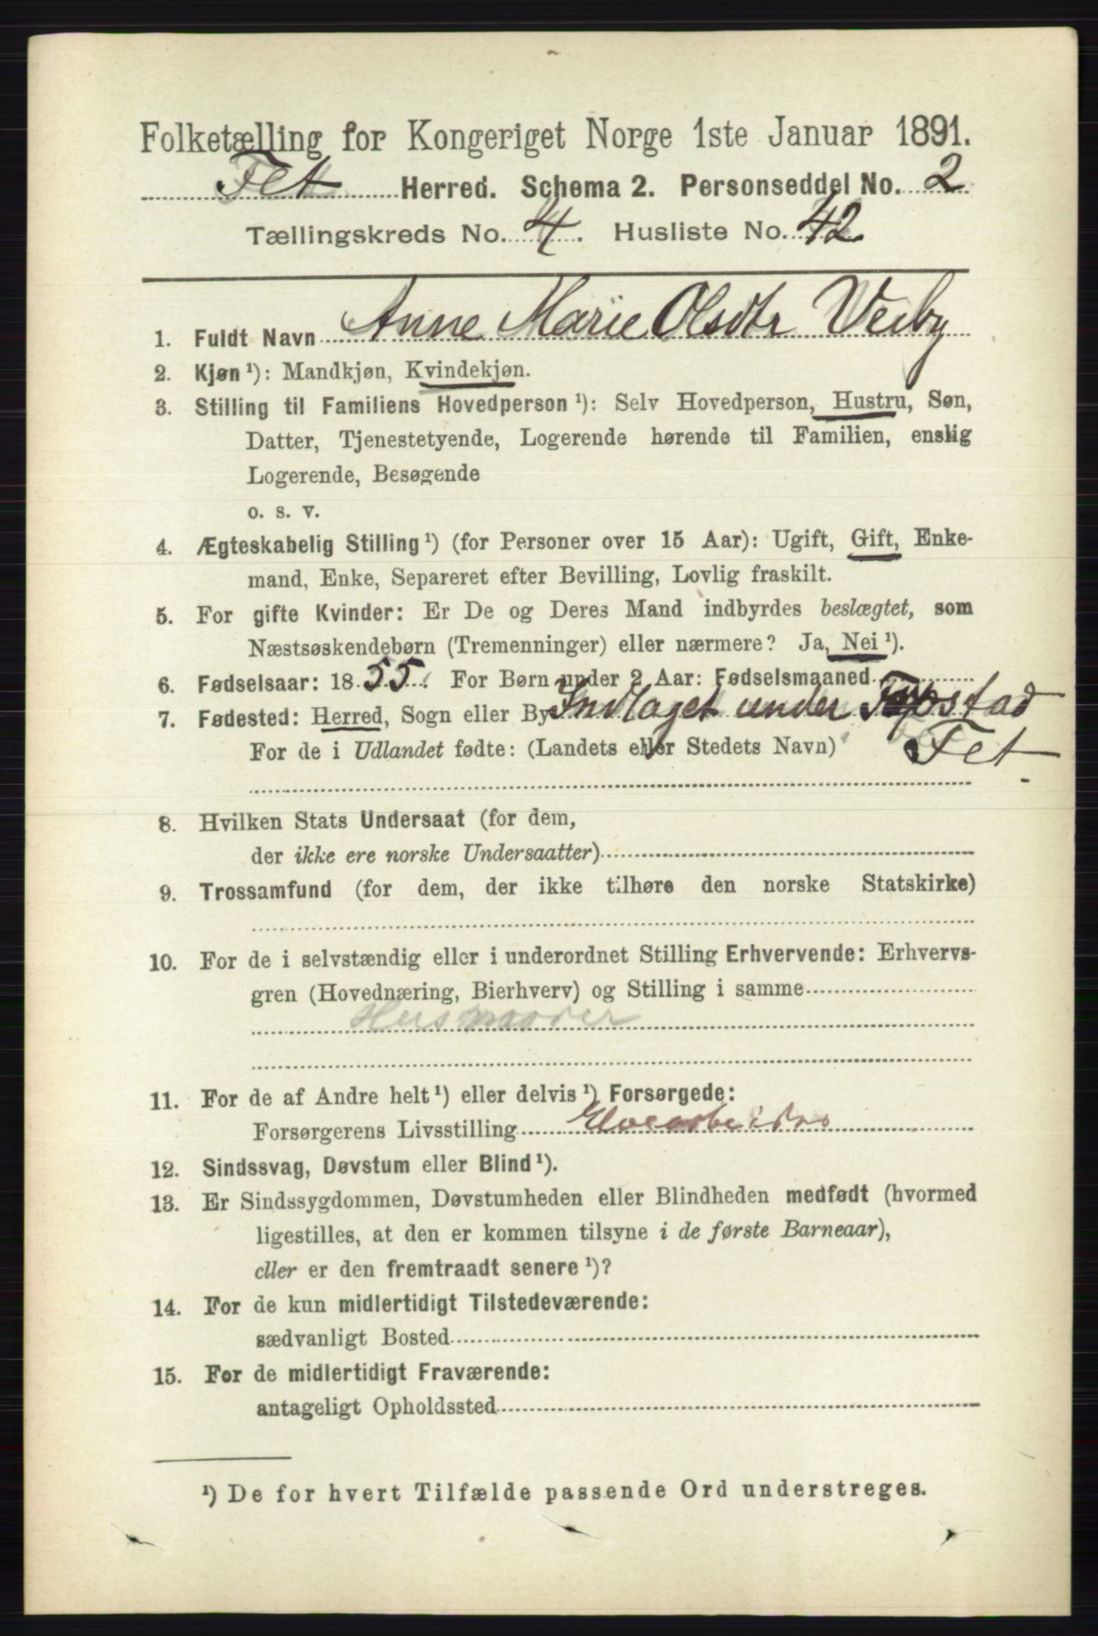 Folketælling for Kongeriget Norge 1ste Januar 1891.
Fet Herred. Schema 2. Personseddel No. 2
Tællingskreds No. 4. Husliste No. 42
1. Fuldt Navn Anne Marie Olsdtr Veiby
2. Kjøn ¹): Mandkjøn, Kvindekjøn.
3. Stilling til Familiens Hovedperson ¹): Selv Hovedperson, Hustru, Søn,
Datter, Tjenestetyende, Logerende hørende til Familien, enslig
Logerende, Besøgende
o. s. v.
4. Ægteskabelig Stilling ¹) (for Personer over 15 Aar): Ugift, Gift, Enke-
mand, Enke, Separeret efter Bevilling, Lovlig fraskilt.
5. For gifte Kvinder: Er De og Deres Mand indbyrdes beslægtet, som
Næstsøskendebørn (Tremenninger) eller nærmere? Ja, Nei ¹).
6. Fødselsaar: 1855. For Børn under 2 Aar: Fødselsmaaned
7. Fødested: Herred, Sogn eller By Indlaget under
For de i Udlandet fødte: (Landets eller Stedets Navn) Fet
8. Hvilken Stats Undersaat (for dem,
der ikke ere norske Undersaatter)
9. Trossamfund (for dem, der ikke tilhøre den norske Statskirke)
10. For de i selvstændig eller i underordnet Stilling Erhvervende: Erhvervs-
gren (Hovednæring, Bierhverv) og Stilling i samme
Husmoder
11. For de af Andre helt ¹) eller delvis ¹) Forsørgede:
Forsørgerens Livsstilling
12. Sindssvag, Døvstum eller Blind ¹).
13. Er Sindssygdommen, Døvstumheden eller Blindheden medfødt (hvormed
ligestilles, at den er kommen tilsyne i de første Barneaar),
eller er den fremtraadt senere ¹)?
14. For de kun midlertidigt Tilstedeværende:
sædvanligt Bosted
15. For de midlertidigt Fraværende:
antageligt Opholdssted
¹) De for hvert Tilfælde passende Ord understreges.